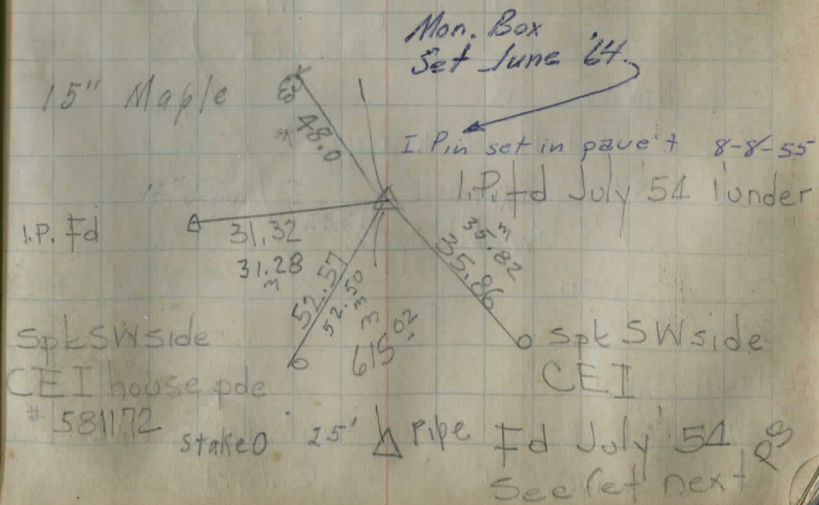 Mon. Box
Set June '64
15" Maple
48.0
I. Pin set in pave't 8-8-55
I.P. fd July '54 1' under
I.P. Fd
31.32
31.28
m
52.57
52.50
m
35.82
m
35.86
615.02
m
Spk SW side
CEI house pole
# 581172
Spk SW side
CEI
Stake O 25' Pipe Fd July '54
See ref next pg